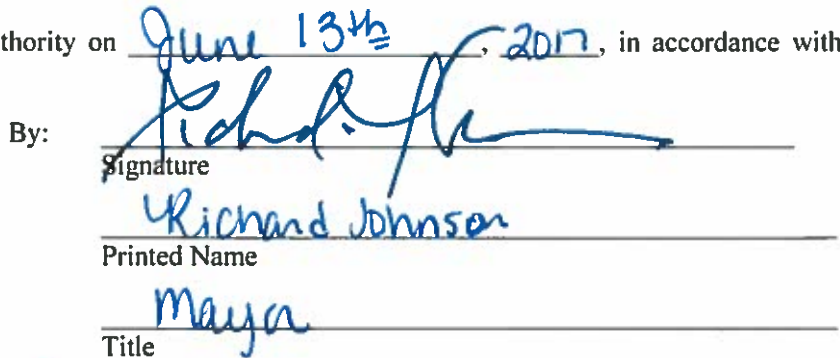 thority on June 13th, 2017, in accordance with
By:
Signature
Richard Johnson
Printed Name
Mayor
Title